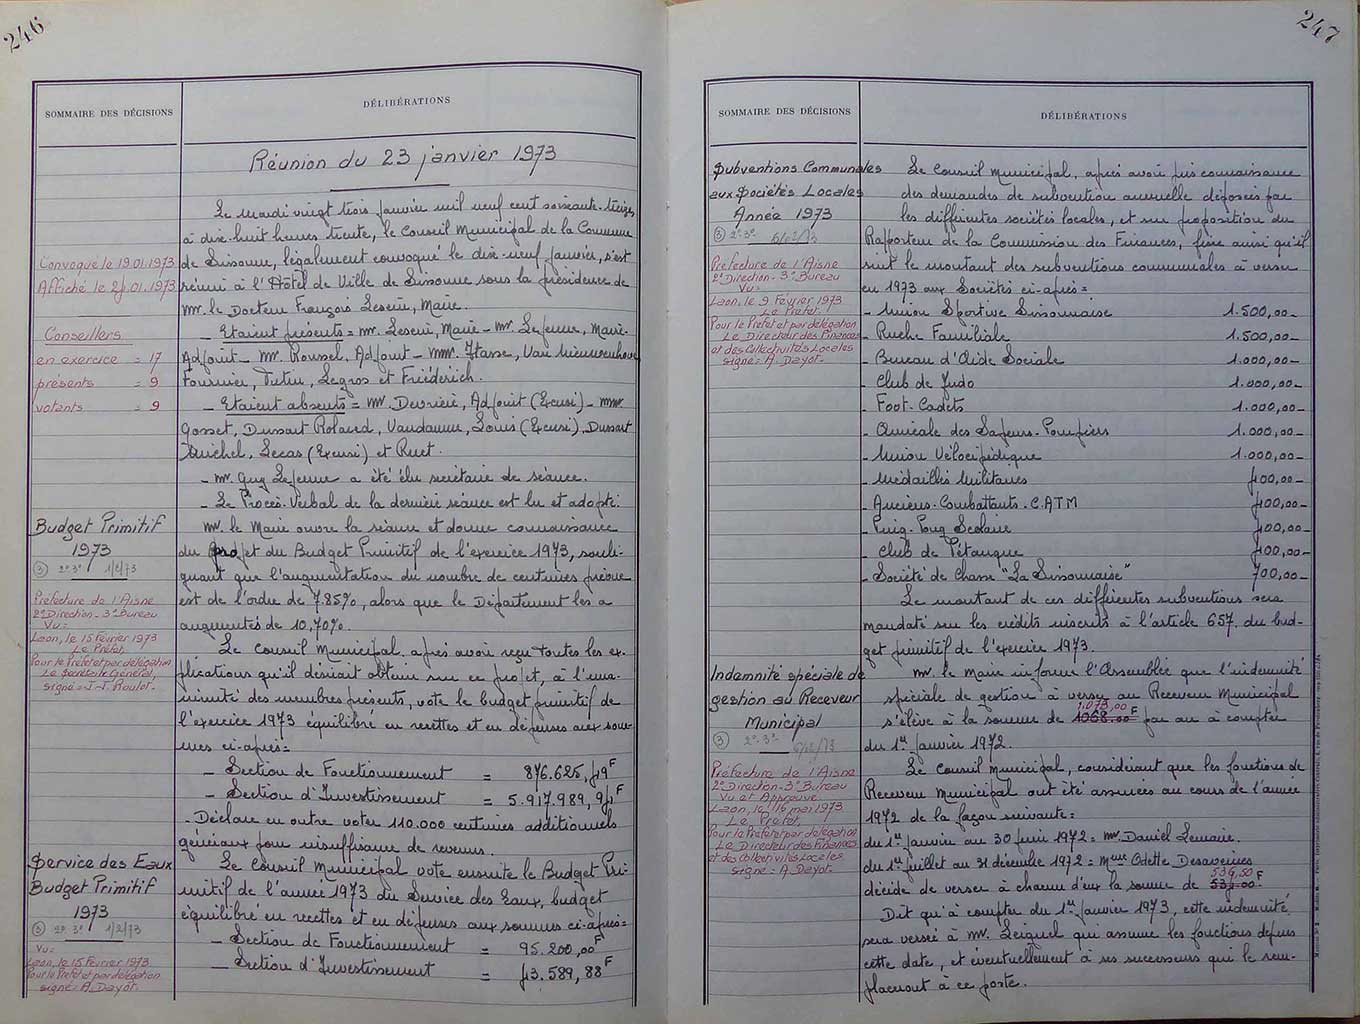 246
SOMMAIRE DES DÉCISIONS
DÉLIBÉRATIONS
Réunion du 23 janvier 1973
Le mardi vingt trois janvier mil neuf cent soixante-treize
à dix-huit heures trente, le Conseil Municipal de la Commune
de Sissonne, légalement convoqué le dix-neuf janvier, s'est
réuni à l'Hôtel de Ville de Sissonne sous la présidence de
Mr. le Docteur François Leseur, Maire.
Convoqué le 19.01.1973
Affiché le 24.01.1973
Conseillers
en exercice = 17
présents = 9
votants = 9
- Etaient présents = Mr. Leseur, Maire - Mr. Lefevre, Maire-
Adjoint - Mr. Roussel, Adjoint - MMr. Itasse, Van Nieuwenhove
Fournier, Tutin, Legros et Friederich.
- Etaient absents = Mr. Devrière, Adjoint (Excusé) - MMr.
Gosset, Dussart Roland, Vandamme, Louis (Excusé), Dussart
Michel, Lecas (Excusé) et Ruet.
- Mr. Guy Lefevre a été élu secrétaire de séance.
- Le Procès-Verbal de la dernière séance est lu et adopté.
Budget Primitif
1973
③ 2°.3° 1/2/73
Préfecture de l'Aisne
2° Direction - 3° Bureau
Vu =
Laon, le 15 Février 1973
Le Préfet,
Pour le Préfet et par délégation
Le Secrétaire Général,
signé = J-J. Roulot.
Mr. le Maire ouvre la séance et donne connaissance
du projet du Budget Primitif de l'exercice 1973, souli-
gnant que l'augmentation du nombre de centimes prévue
est de l'ordre de 7.85%, alors que le Département les a
augmentés de 10,70%.
Le Conseil Municipal, après avoir reçu toutes les ex-
plications qu'il désirait obtenir sur ce projet, à l'una-
nimité des membres présents, vote le budget primitif de
l'exercice 1973 équilibré en recettes et en dépenses aux som-
mes ci-après =
- Section de Fonctionnement = 876.625,49F
- Section d'Investissement = 5.917.989,94F
- Déclare en outre voter 110.000 centimes additionnels
généraux pour insuffisance de revenus.
Service des Eaux
Budget Primitif
1973
③ 2°.3° 1/2/73
Vu =
Laon, le 15 Février 1973
Pour le Préfet et par délégation
signé = A. Dayot.
Le Conseil Municipal vote ensuite le Budget Pri-
mitif de l'année 1973 du Service des Eaux, budget
équilibré en recettes et en dépenses aux sommes ci-après =
- Section de Fonctionnement = 95.200,00F
- Section d'Investissement = 43.589,88F
247
SOMMAIRE DES DÉCISIONS
DÉLIBÉRATIONS
Subventions Communales
aux Sociétés Locales
Année 1973
③ 2°.3° 6/02/73
Préfecture de l'Aisne
2° Direction - 3° Bureau
Vu =
Laon, le 9 Février 1973
Le Préfet,
Pour le Préfet et par délégation
Le Directeur des Finances
et des Collectivités Locales
signé = A. Dayot.
Le Conseil Municipal, après avoir pris connaissance
des demandes de subvention annuelle déposées par
les différentes sociétés locales, et sur proposition du
Rapporteur de la Commission des Finances, fixe ainsi qu'il
suit le montant des subventions communales à verser
en 1973 aux Sociétés ci-après =
- Union Sportive Sissonnaise 1.500,00-
- Ruche Familiale 1.500,00-
- Bureau d'Aide Sociale 1.000,00-
- Club de Judo 1.000,00-
- Foot-Cadets 1.000,00-
- Amicale des Sapeurs-Pompiers 1.000,00-
- Union Vélocipédique 1.000,00-
- Médaillés Militaires 400,00-
- Anciens-Combattants-C.ATM 400,00-
- Ping-Pong Scolaire 400,00-
- Club de Pétanque 400,00-
- Société de Chasse "La Sissonnaise" 700,00-
Le montant de ces différentes subventions sera
mandaté sur les crédits inscrits à l'article 657, du bud-
get primitif de l'exercice 1973.
Indemnité spéciale de
gestion au Receveur
Municipal
③ 2°.3° 6/02/73
Préfecture de l'Aisne
2° Direction - 3° Bureau
Vu et Approuvé
Laon, le 16 mai 1973
Le Préfet,
Pour le Préfet et par délégation
Le Directeur des Finances
et des Collectivités Locales
signé = A. Dayot.
Mr. le Maire informe l'Assemblée que l'indemnité
spéciale de gestion à verser au Receveur Municipal
1.073,00
s'élève à la somme de 1068.00F par an à compter
du 1er Janvier 1972.
Le Conseil Municipal, considérant que les fonctions de
Receveur Municipal ont été assurées au cours de l'année
1972 de la façon suivante =
du 1er janvier au 30 juin 1972 = Mr. Daniel Lemaire.
du 1er juillet au 31 décembre 1972 = Mme Odette Desavernies
536,50
décide de verser à chacun d'eux la somme de 534.00F.
Dit qu'à compter du 1er Janvier 1973, cette indemnité
sera versée à Mr. Leiguel qui assume les fonctions depuis
cette date, et éventuellement à ses successeurs qui le rem-
placeront à ce poste.